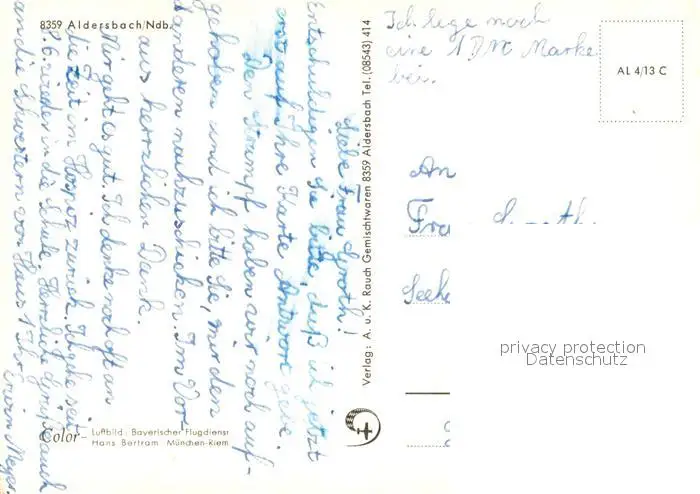 8359 Aldersbach/Ndb.
Ich lege noch
eine 1 DM Marke
bei.
AL 4/13 C
Liebe Frau Groth!
Entschuldigen Sie bitte, daß ich jetzt
erst auf Ihre Karte Antwort gebe.
Den Strumpf haben wir noch auf-
gehoben und ich bitte Sie, mir den
anderen nachzuschicken. Im Vor-
aus herzlichen Dank.
Mir geht es gut. Ich denke noch oft an
die Zeit im Hospiz zurück. Ich gehe seit
8.6. wieder in die Schule. Herzliche Grüße auch
an die Schwestern von Haus 1 Ihr
Erwin Meyer
Verlag: A. u. K. Rauch Gemischtwaren 8359 Aldersbach Tel. (08543) 414
An
Fra
Seehe
privacy protection
Datenschutz
Color-
Luftbild: Bayerischer Flugdienst
Hans Bertram München-Riem